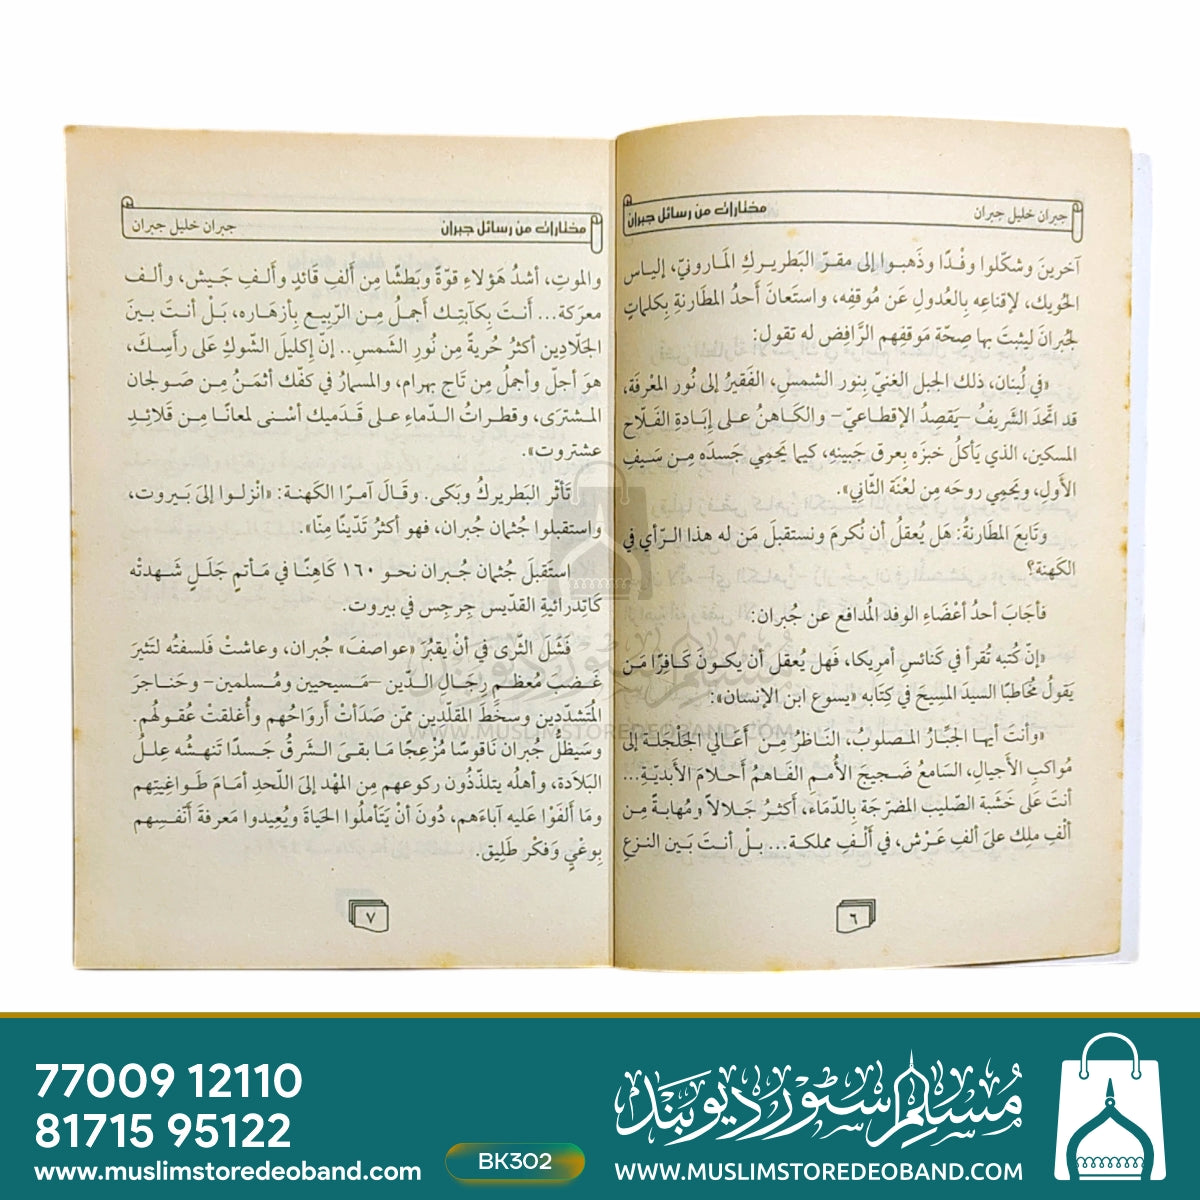 جبران خليل جبران
مختارات من رسائل جبران
آخرينَ وشكّلوا وفْدًا وذَهبوا إلى مقرّ البَطريركِ المَارونيّ، إلياس
الحُويك، لإقناعِه بِالعُدولِ عَن مُوقفِه، واستَعانَ أَحدُ المطَارنةِ بِكلماتٍ
لجُبرانَ ليثبتَ بها صِحّة مَوقفِهم الرَّافِض له تقول:
«في لُبنان، ذلك الجبل الغنيّ بِنور الشمسِ، الفَقيرُ إلى نُور المعْرفَة،
قد اتّحدَ الشَّريفُ –يَقصدُ الإقطاعيّ– والكَاهنُ على إبَادةِ الفَلّاح
المسكين، الذي يَأكلُ خبزَه بِعرق جَبينِه، كيما يَحمِي جَسدَه مِن سَيفِ
الأَولِ، ويَحمِي روحَه مِن لعْنَة الثَّانِي».
وتَابعَ المطَارنةُ: هَل يُعقلُ أن نُكرمَ ونستقبلَ مَن له هذا الرّأي في
الكَهنة؟
فأجَابَ أحدُ أعْضَاءِ الوفد المُدافع عن جُبران:
«إنّ كُتبه تُقرأ في كَنائسِ أمرِيكا، فَهل يُعقل أن يكونَ كَافِرًا مَن
يقولُ مُخاطبًا السيدَ المسِيحَ في كِتَابه «يسوع ابن الإنسان»:
«وأنتَ أيهـا الجبَّارُ المـصلوبُ، النَاظرُ مِنْ أعَالِي الجَلجَلة إلى
مُواكبِ الأَجيالِ، السَامعُ ضَجيجَ الأُممِ الفَاهمُ أَحلامَ الأَبديّةِ...
أنتَ عَلى خَشَبة الصّليبِ المضرّجَة بِالدّمَاء، أَكثرُ جَلالاً ومُهابةً مِن
أَلْفِ ملِك علَى ألفِ عَرْش، في أَلْفِ مملكة... بلْ أنتَ بَين النزعِ
٦
جبران خليل جبران
مختارات من رسائل جبران
والموتِ، أشدُّ هَؤلاءِ قوّةً وبَطشًا مِن أَلفِ قائدٍ وأَلـفِ جَـيش، وألـف
معرَكة... أَنتَ بِكآبتِك أَجملُ مِـن الرّبِيـع بِأزهَاره، بَلْ أنتَ بينَ
الجَلّادين أكثرُ حُريةً مِن نُورِ الشَمسِ.. إنّ إكليلَ الشّوكِ عَلى رأسِكَ،
هوَ أجلّ وأجملُ مِن تَاج بهرام، والمسمَارُ في كفّك أثمَنُ مِن صَولجان
المشترَى، وقطراتُ الدّماءِ على قَدَميك أسْنى لمعانًا مِن قَلائِدِ
عشتروت».
تَأثّر البَطريركُ وبَكى. وقَالَ آمرًا الكَهنة: «انْزلوا إلىَ بَيروت،
واستقبلوا جُثمان جُبران، فهو أكثرُ تَديّنًا منّا».
استَقبلَ جُثمان جُبران نحو ١٦٠ كَاهِنًا في مَأتمٍ جَلَلٍ شَهدتْه
كَاتِدرائيةِ القدّيس جِرجِس في بيروت.
فَشُلَ الثَّرى في أنْ يقبُرَ «عواصفَ» جُبران، وعاشت فَلسفتُه لتثيرَ
غَضبَ مُعظمِ رِجَالِ الدّين –مَسيحيين ومُسلمين– وحَناجرَ
المُتشدّدِين وسخَطَ المقلّدِين ممّن صَدَأتْ أَرواحُهم وأُغلقتْ عقُولهُم.
وسَيظلُّ جُبران نَاقوسًا مُزعِجًا مَا بقىَ الشَرقُ جَسدًا تَنهشُه عِللُ
البَلادَة، وأهلُه يتلذّذُون رِكوعهم مِن المهْد إلىَ اللحدِ أمَامَ طَواغيتِهم
ومَا ألفَوْا عَليه آباءَهم، دُونَ أنْ يَتأملُوا الحَياةَ ويُعِيدوا مَعرفةَ أنْفسِهم
بِوعْيٍ وفكْر طَلِيق.
٧
WWW.MUSLIMSTOREDEOBAND.COM
77009 12110
81715 95122
www.muslimstoredeoband.com
BK302
مسلم سٹور دیوبند
WWW.MUSLIMSTOREDEOBAND.COM